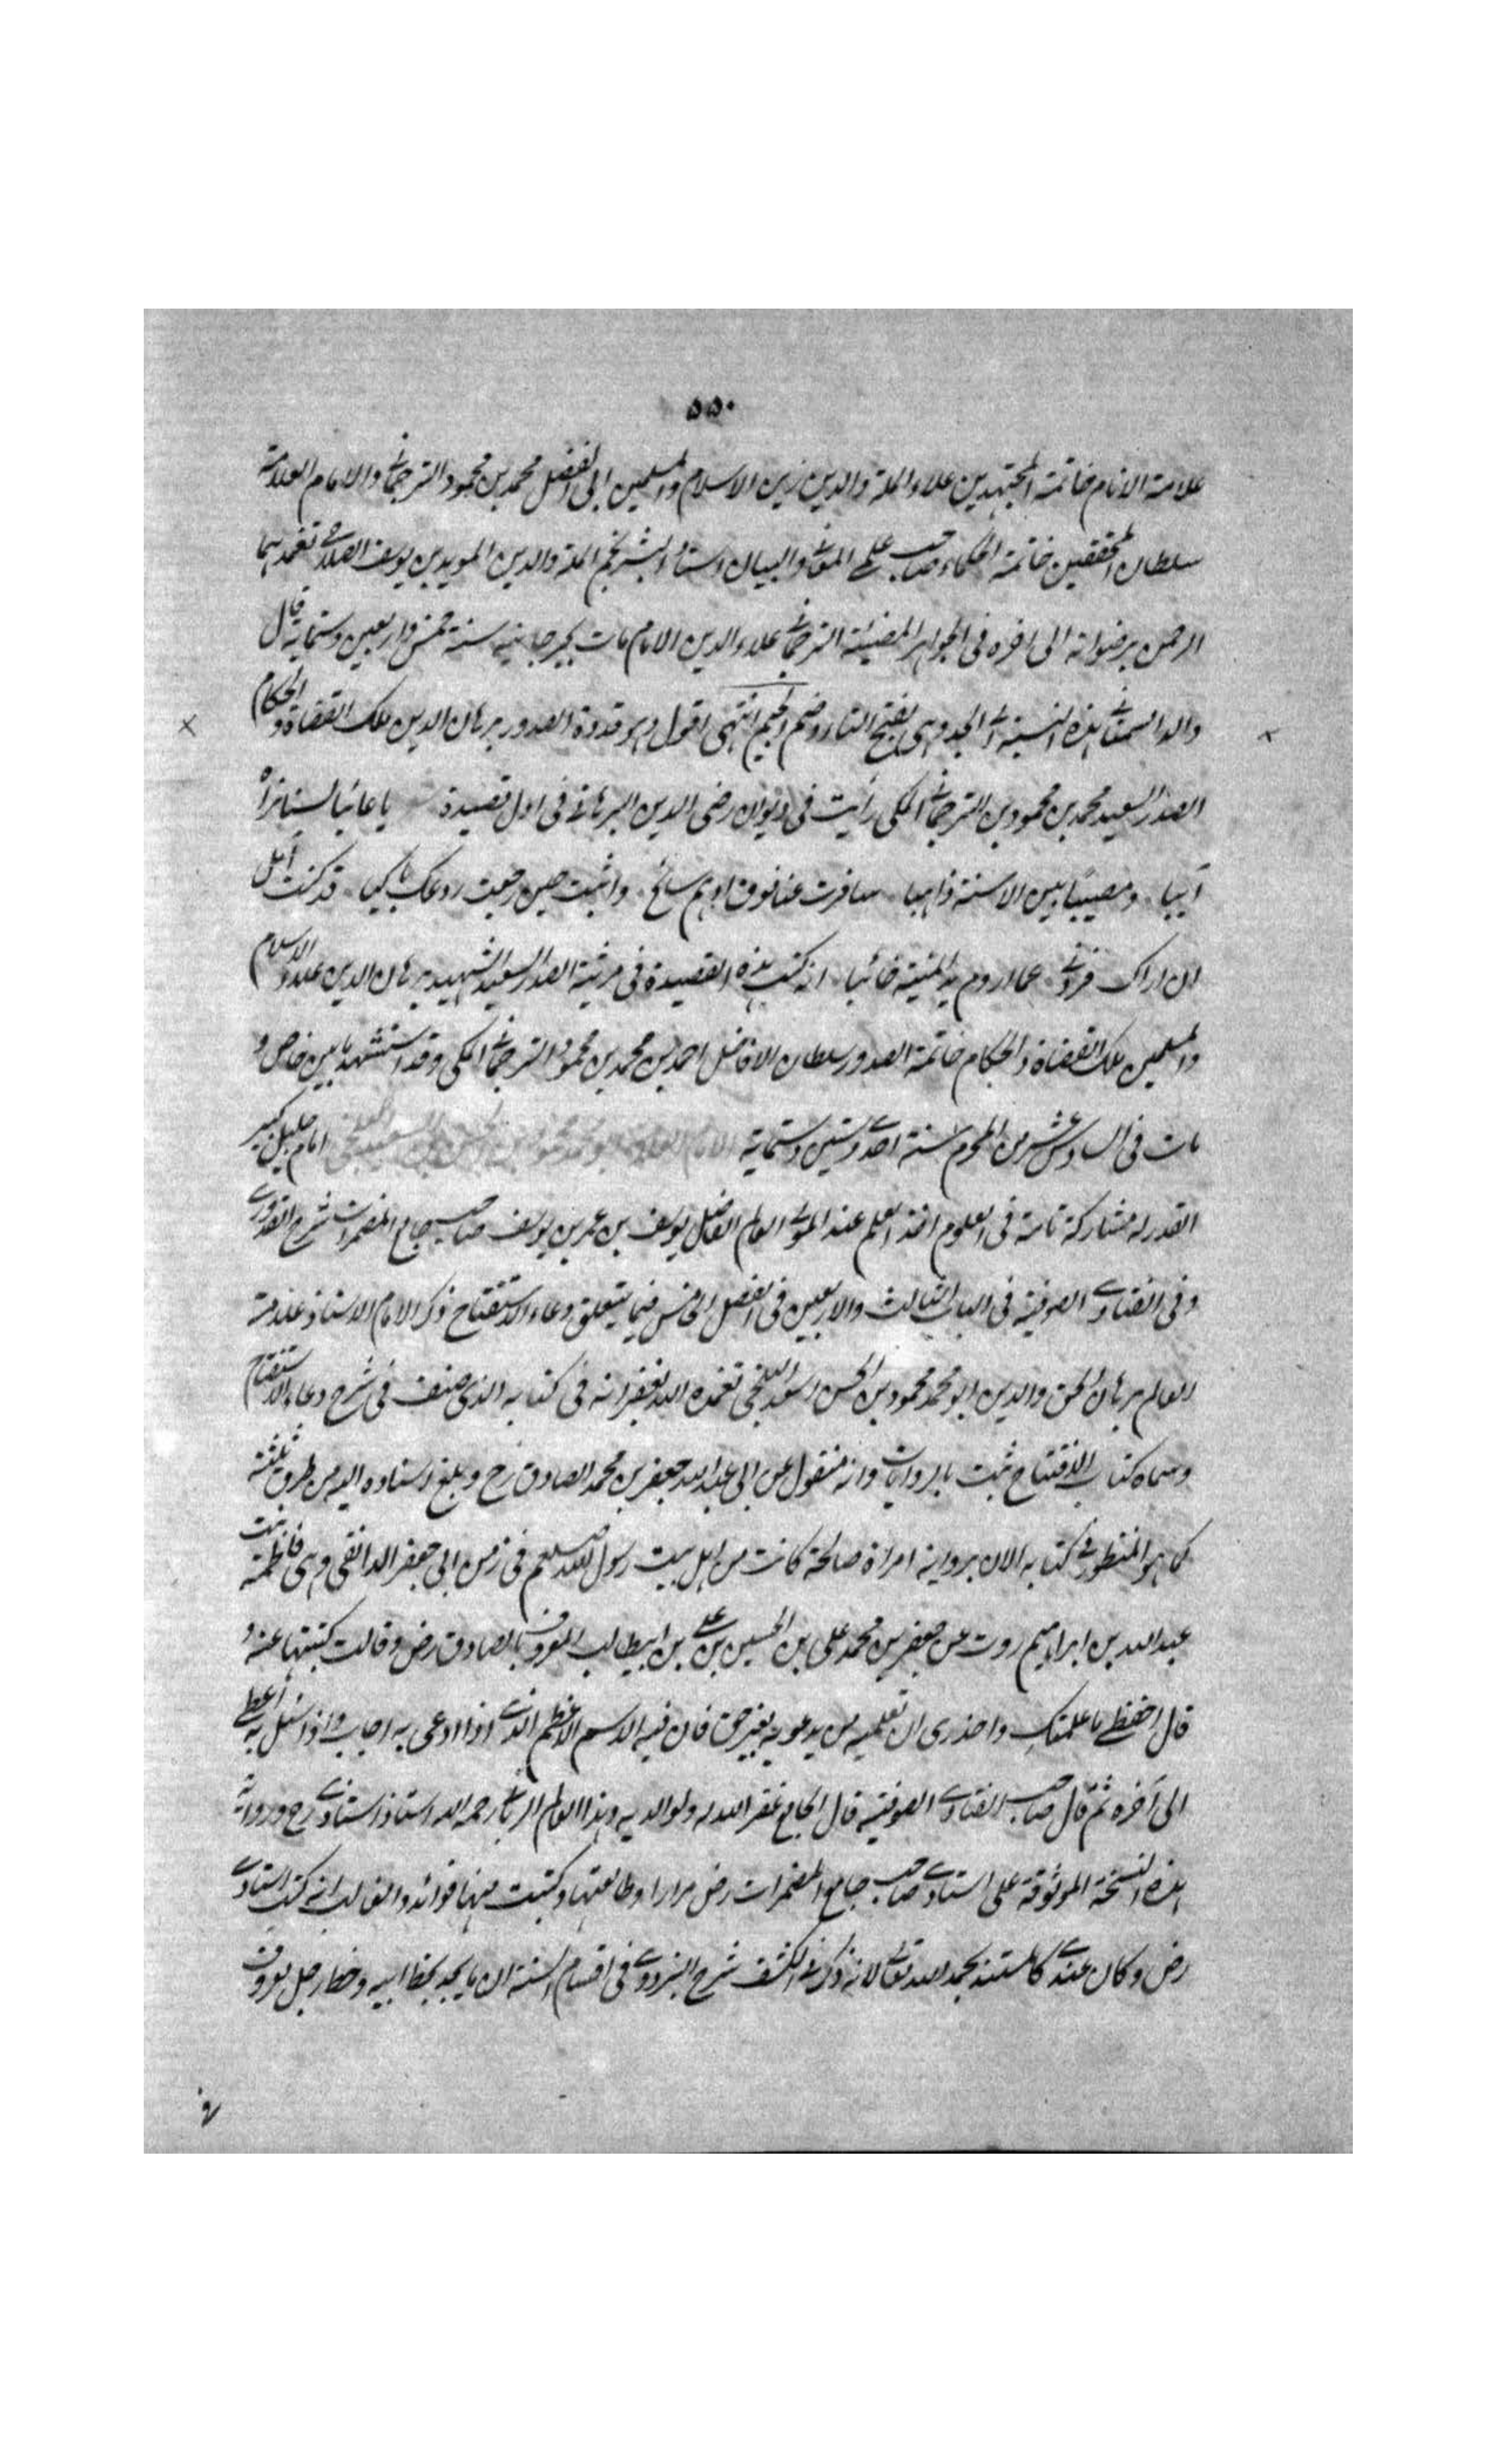 ٥٥٠
علامة الانام خاتمة المجتهدين علاء الملة والدين زين الاسلام والمسلمين ابى الفضل محمد بن محمود الترجمانى والامام العلامة
سلطان المحققين خاتمة الحكماء صاحب علمى المعانى والبيان استاد البشر نجم الملة والدين المويد بن يوسف الصلاحى تغمدهما
الرحمن برضوانه الى اخره فى الجواهر المضيئة الترجمانى علاء الدين الامام مات بجرجانيه سنة خمس واربعين وستماية قال
والد السمعانى هذه النسبة الى الجد وهى بفتح التاء وضم الجيم انتهى اقول وهو قدوة الصدور برهان الدين ملك القضاة والحكام
الصدر السعيد محمد بن محمود بن الترجمانى المكى رأيت فى ديوان رضى الدين البرهانى فى اول قصيدة يا غائبا لسنا نراه
آيبا ومصيبا بين الاسنة ذاهبا سافرت عنا فوق ادهم سائح واثبت حين رجعت روعك باكيا قد كنت آمل
ان اراك فردنى عما اروم يد المنية خائبا انه كتب هذه القصيدة فى مرثية الصدر السعيد الشهيد برهان الدين علاء الاسلام
والمسلمين ملك القضاة والحكام خاتمة الصدور سلطان الافاضل احمد بن محمد بن محمود الترجمانى المكى وقد استشهد بابين خاص و
مات فى السادس عشر من المحرم سنة احدى وستين وستماية الامام العلامة ابو محمد محمود بن الحسن بن اسعد البلخى امام جليل كبير
القدر له مشاركة تامة فى العلوم اخذ العلم عند المولى العالم الفاضل يوسف بن عمر بن يوسف صاحب جامع المضمرات شرح القدورى
وفى الفتاوى الصوفية فى الباب الثالث والاربعين فى الفصل الخامس فيما يتعلق دعاء الاستفتاح ذكر الامام الاستاذ علامة
العالم برهان الحق والدين ابو محمد محمود بن الحسن اسعد البلخى تغمده الله بغفرانه فى كتابه الذى صنف فى شرح دعاء الاستفتاح
وسماه كتاب الافتتاح ثبت بالروايات وانه منقول عن ابى عبد الله جعفر بن محمد الصادق رح وبلغ اسناده اليه من طرق ثلثة
كما هو المنظور فى كتابه الان برواية امراة صالحة كانت من اهل بيت رسول الله صلعم فى زمن ابى جعفر الدوانقى وهى فاطمة بنت
عبد الله بن ابراهيم روت عن جعفر بن محمد على بن الحسين بن على بن ابيطالب المعروف بالصادق رض وقالت كتبتها عنه و
قال احفظى ما علمتك واحذرى ان تعلميه من يدعو به بغير حق فان فيه الاسم الاعظم الذى اذا ادعى به اجاب واذا سئل به اعطى
الى آخره ثم قال صاحب الفتاوى الصوفية قال الجامع غفر الله له ولوالديه وهذا العالم الربانى رحمه الله استاذ استاذى رح ورواية
هذه النسخة الموثوقة على استاذى صاحب جامع المضمرات رض مرارا وطالعتها وكتبت منها فوائد والغالب انه كتب استاذى
رض وكان عندى كالمستند بحمد الله تعالى لانه ذكر فى الكشف شرح البزدوى فى اقسام السنة ان ما يجد بخط ابيه وخط رجل معروف